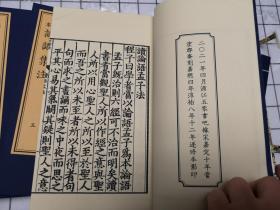 二〇二一年四月江五峯書據宋嘉定十年當
塗郡齋刻嘉熙四年淳祐八年十二年遞修本影印
讀論語孟子法
程子曰學者當以論語孟子爲本論語
孟子既治則六經可不治而明矣讀
書者當觀聖人所以作經之意與聖
人所以用心聖人之所以至於聖人
而吾之所以未至者所以未得者句
句而求之晝誦而味之中夜而思之
平其心易其氣闕其疑則聖人之意
論語集注
五